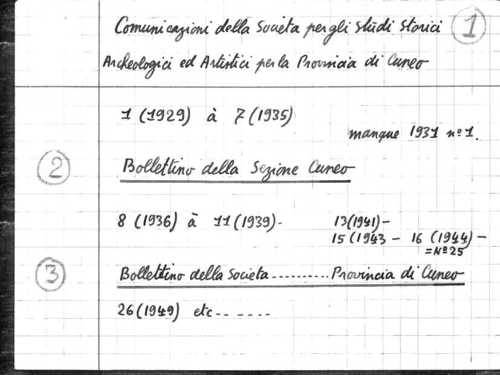 Comunicazioni della Società per gli Studi Storici 1
Archeologici ed Artistici per la Provincia di Cuneo
1 (1929) à 7 (1935)
manque 1931 n° 1.
2 Bollettino della Sezione Cuneo
8 (1936) à 11 (1939) - 13 (1941) -
15 (1943 - 16 (1944) -
= N° 25
3 Bollettino della Società .......... Provincia di Cuneo
26 (1949) etc - - - - - -